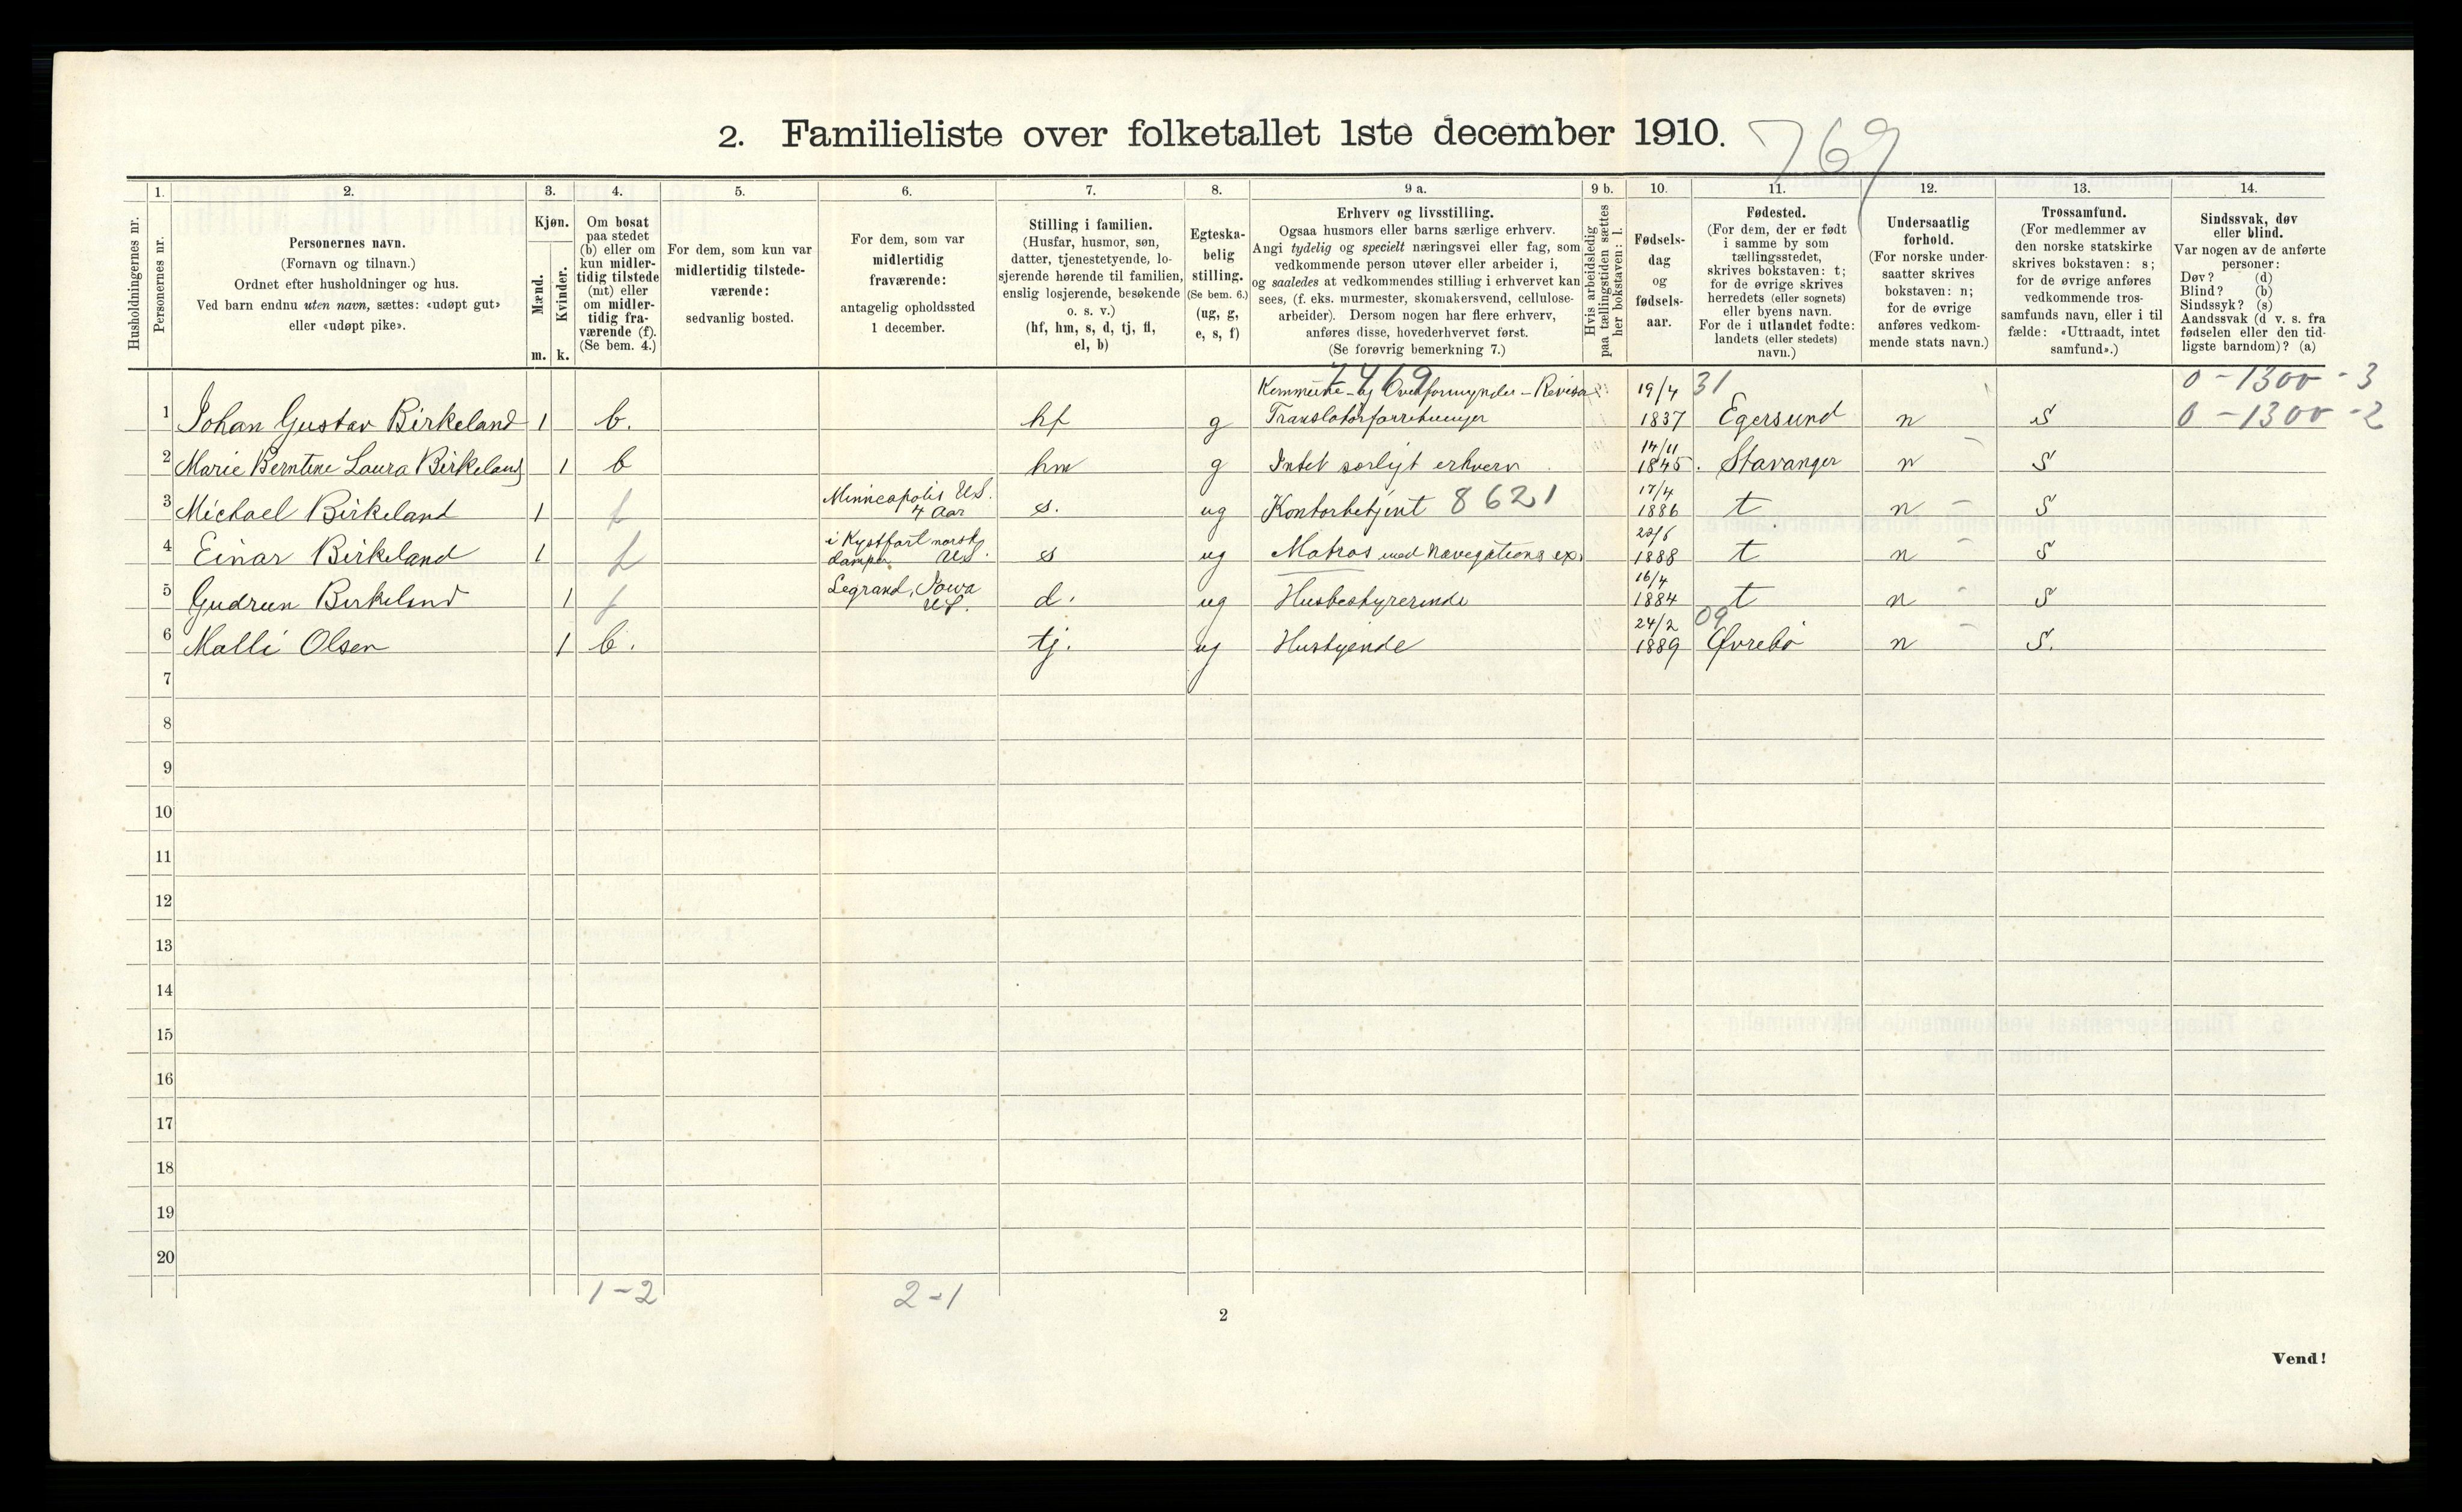 769
2. Familieliste over folketallet 1ste december 1910.
Husholdningernes nr.
1.
Personernes nr.
2.
Personernes navn.
(Fornavn og tilnavn.)
Ordnet efter husholdninger og hus.
Ved barn endnu uten navn, sættes: «udøpt gut»
eller «udøpt pike».
3.
Kjøn.
Mænd.
Kvinder.
m. k.
4.
Om bosat
paa stedet
(b) eller om
kun midler-
tidig tilstede
(mt) eller
om midler-
tidig fra-
værende (f).
(Se bem. 4.)
5.
For dem, som kun var
midlertidig tilstede-
værende:
sedvanlig bosted.
6.
For dem, som var
midlertidig
fraværende:
antagelig opholdssted
1 december.
7.
Stilling i familien.
(Husfar, husmor, søn,
datter, tjenestetyende, lo-
sjerende hørende til familien,
enslig losjerende, besøkende
o. s. v.)
(hf, hm, s, d, tj, fl,
el, b)
8.
Egteska-
belig
stilling.
(Se bem. 6.)
(ug, g,
e, s, f)
9 a.
Erhverv og livsstilling.
Ogsaa husmors eller barns særlige erhverv.
Angi tydelig og specielt næringsvei eller fag, som
vedkommende person utøver eller arbeider i,
og saaledes at vedkommendes stilling i erhvervet kan
sees, (f. eks. murmester, skomakersvend, cellulose-
arbeider). Dersom nogen har flere erhverv,
anføres disse, hovederhvervet først.
(Se forøvrig bemerkning 7.)
9 b.
Hvis arbeidsledig
paa tællingstiden sættes
her bokstaven: l.
10.
Fødsels-
dag
og
fødsels-
aar.
11.
Fødested.
(For dem, der er født
i samme by som
tællingsstedet,
skrives bokstaven: t;
for de øvrige skrives
herredets (eller sognets)
eller byens navn.
For de i utlandet fødte:
landets (eller stedets)
navn.)
12.
Undersaatlig
forhold.
(For norske under-
saatter skrives
bokstaven: n;
for de øvrige
anføres vedkom-
mende stats navn.)
13.
Trossamfund.
(For medlemmer av
den norske statskirke
skrives bokstaven: s;
for de øvrige anføres
vedkommende tros-
samfunds navn, eller i til
fælde: «Uttraadt, intet
samfund».)
14.
Sindssvak, døv
eller blind.
Var nogen av de anførte
personer:
Døv? (d)
Blind? (b)
Sindssyk? (s)
Aandssvak (d v. s. fra
fødselen eller den tid-
ligste barndom)? (a)
7469 Kommune- og Overformynder-Revisor 19/4 31 0-1300-3
1 Johan Gustav Birkeland 1 b. hf g Translatørforretninger 1837 Egersund n S 0-1300-2
2 Marie Berntine Laura Birkeland 1 b hm g Intet særligt erhverv 14/11 1845. Stavanger n S
3 Michael Birkeland 1 f Minneapolis US. 4 Aar s. ug Kontorbetjent 8621 17/4 1886 t n - S
4 Einar Birkeland 1 f i Kystfart norsk damper US. s ug Matros med Navegations ex. 1888 t n - S
5 Gudrun Birkeland 1 f Legrand, Iowa US. d. ug Husbestyrerinde 16/4 1884 t n - S
6 Malli Olsen 1 b. tj. ug Hustyende 24/2 1889 09 Øvrebö n - S.
7
8
9
10
11
12
13
14
15
16
17
18
19
20
1-2 2-1
2
Vend!